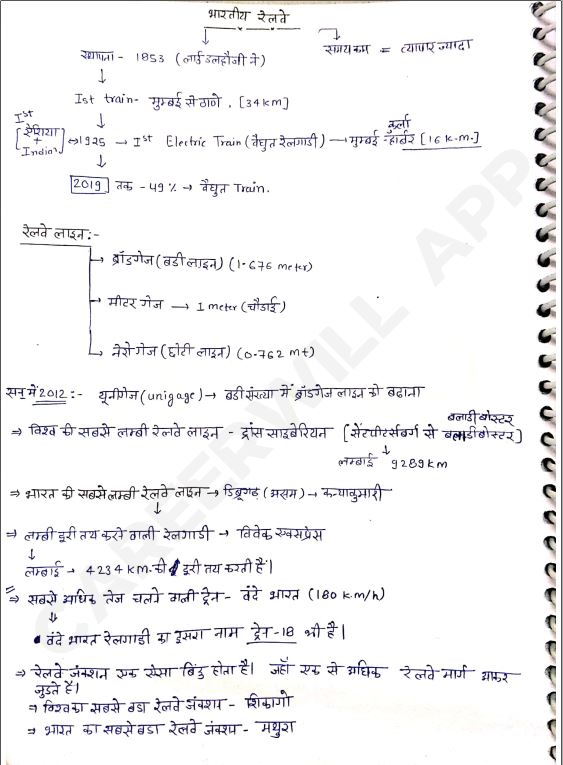 भारतीय रेलवे
समय कम = व्यापार ज्यादा
स्थापना - 1853 (लार्ड डलहौजी ने)
Ist train - मुम्बई से ठाणे, [34 km]
Ist [एशिया + India] ⇔ 1925 → Ist Electric Train (वैधुत रेलगाडी) → मुम्बई कुर्ला हार्बर [16 k.m.]
2019 तक - 49% → वैधुत Train.
रेलवे लाइन :-
→ ब्रॉडगेज (बडी लाइन) (1.676 meter)
→ मीटर गेज → 1 meter (चौडाई)
→ नेरो गेज (छोटी लाइन) (0.762 mt)
सन् में 2012 :- यूनीगेज (unigage) → बडी संख्या में ब्रॉडगेज लाइन को बढाना
⇒ विश्व की सबसे लम्बी रेलवे लाइन - ट्रांस साइबेरियन [सेंटपीटर्सबर्ग से ब्लाडीबोस्टर]
ब्लाडीबोस्टर
लम्बाई 9289 km
⇒ भारत की सबसे लम्बी रेलवे लाइन → डिब्रूगढ़ (असम) → कन्याकुमारी
⇒ लम्बी दूरी तय करने वाली रेलगाडी → विवेक एक्सप्रेस
लम्बाई → 4234 KM. की दूरी तय करती है।
⇒ सबसे अधिक तेज चलने वाली ट्रेन - वंदे भारत (180 k.m/h)
• वंदे भारत रेलगाडी का दूसरा नाम ट्रेन-18 भी है।
⇒ रेलवे जंक्शन एक ऐसा बिंदु होता है। जहाँ एक से अधिक रेलवे मार्ग आकर
जुडते है।
⇒ विश्व का सबसे बडा रेलवे जंक्शन - शिकागो
⇒ भारत का सबसे बडा रेलवे जंक्शन - मथुरा
CAREERWILL APP